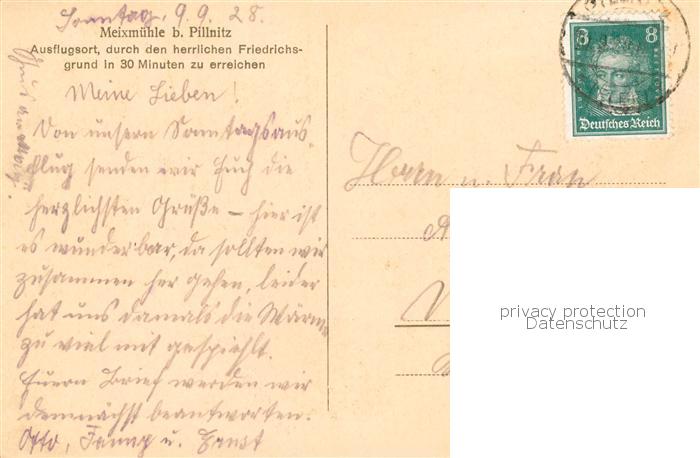 Sonntag, 9.9.28.
Meixmühle b. Pillnitz
Ausflugsort, durch den herrlichen Friedrichs-
grund in 30 Minuten zu erreichen
Meine Lieben!
Von unserm Sonntagsaus-
flug senden wir Euch die
herzlichsten Grüße – hier ist
es wunderbar, da sollten wir
zusammen her gehen, leider
hat uns damals die Wärme
zu viel mit gespiehlt.
Euern Brief werden wir
demnächst beantworten.
Otto, Fanny u. Ernst
8 8
Deutsches Reich
Herrn u. Frau
privacy protection
Datenschutz